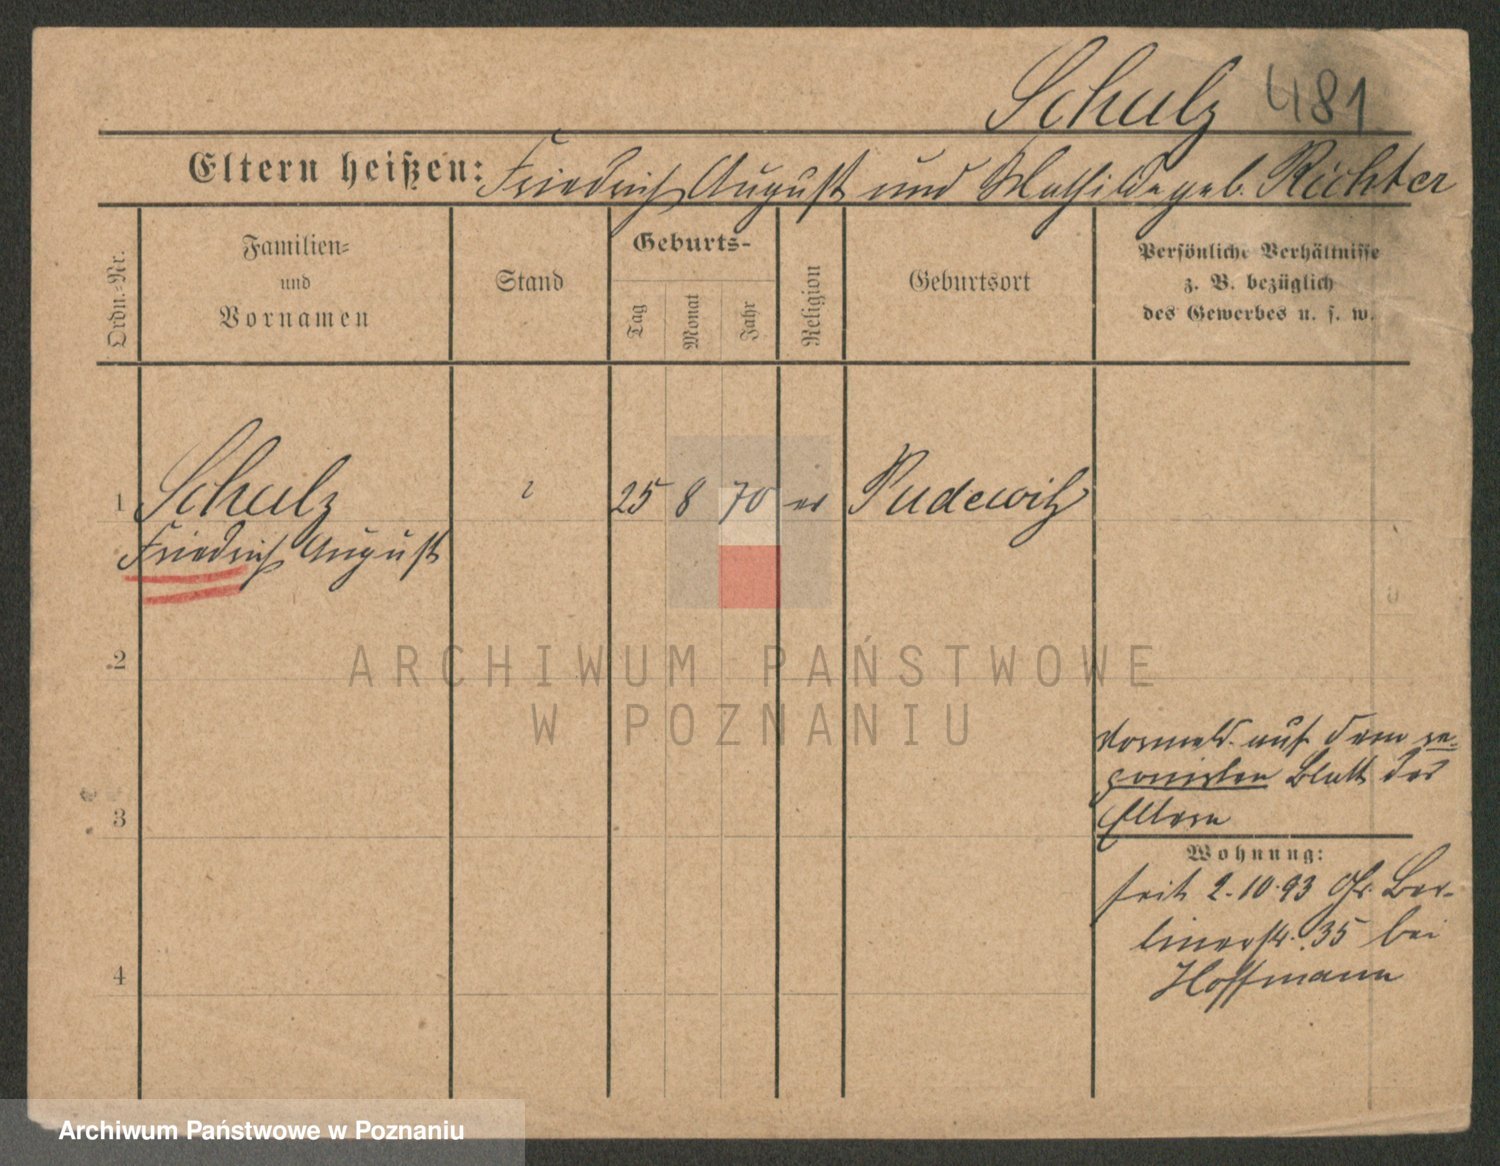 Schulz 481
Eltern heißen: Friedrich August und Mathilde geb. Richter
Ordn.-Nr.
Familien-
und
Vornamen
Stand
Geburts-
Tag
Monat
Jahr
Religion
Geburtsort
Persönliche Verhältnisse
z. B. bezüglich
des Gewerbes u. s. w.
1 Schulz 25 8 70 ev Pudewitz
Friedrich August
2
ARCHIWUM PAŃSTWOWE
W POZNANIU
auf dem
Blatt der
3 Eltern
Wohnung:
seit 2.10.93 Gr. Ber-
linerstr. 35 bei
4 Hoffmann
Archiwum Państwowe w Poznaniu